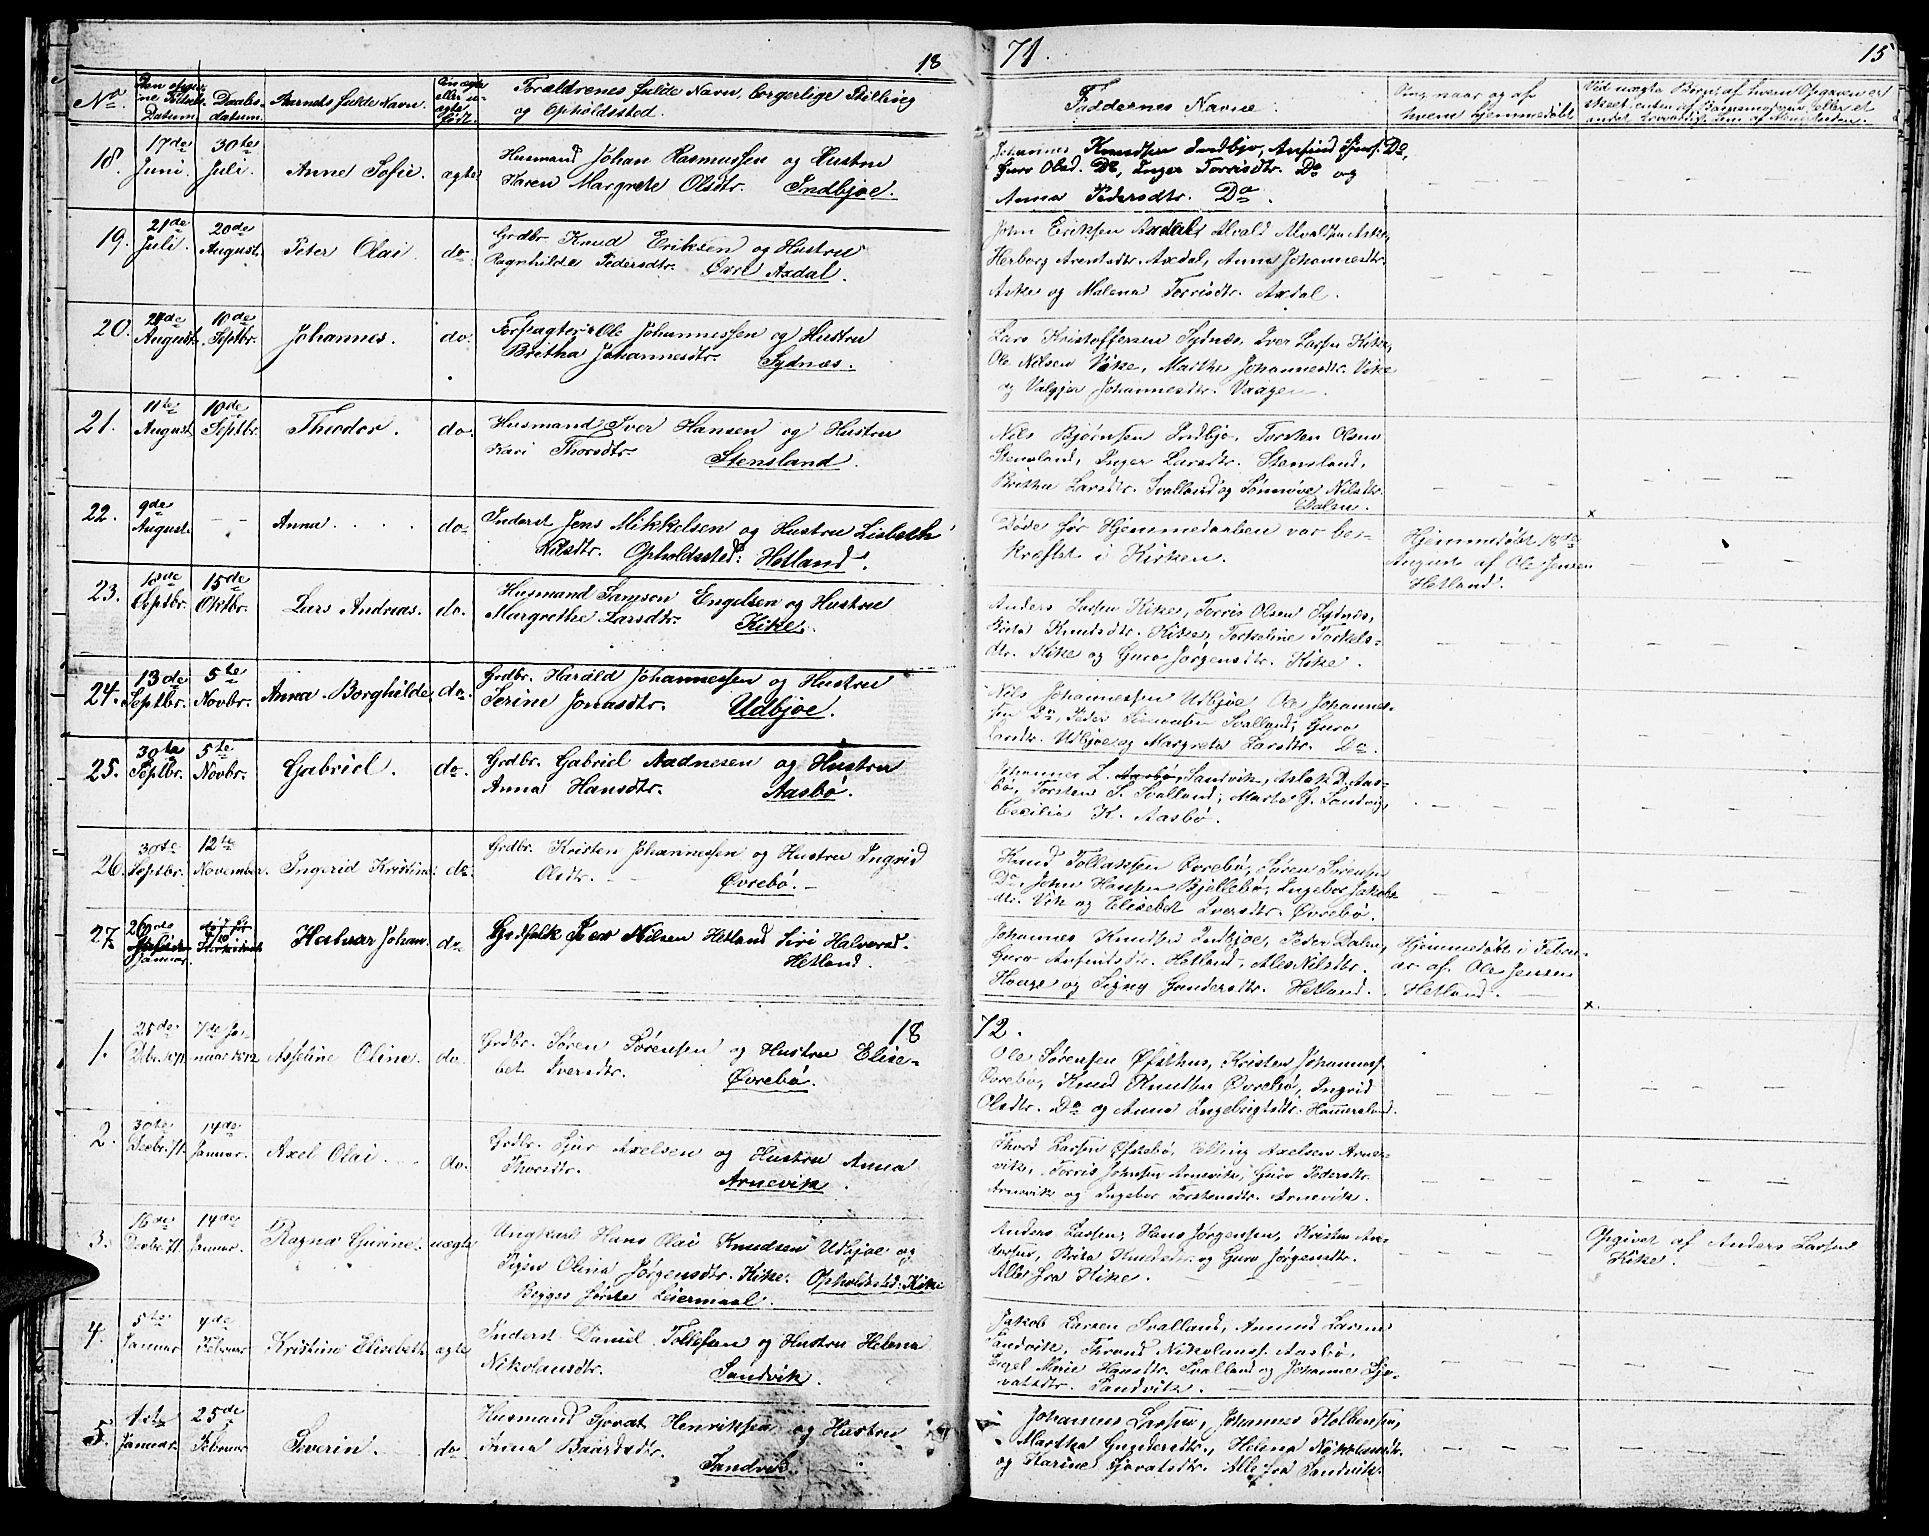 18
71.
15
No.
Daabs-
datum.
Barnets fulde Navn.
Forældrenes fulde Navn, borgerlige Stilling
og Opholdssted.
Faddernes Navne.
Om, naar og af
hvem hjemmedøbt
18.
17de
Juni.
30te
Juli.
Anne Sofie.
ægte
Husmand Johan Rasmussen og Hustru
Karen Margrete Olsdtr. Indbjoe.
Johannes Knudsen Indbjo, Anfind Do,
Guro Olsd. Do, Inger Torrisdtr. Do og
Anna Pedersdtr. Do.
19.
21de
Juli.
20de
August.
Peter Olai.
do.
Grdbr. Knud Eriksen og Hustru
Ragnhilde Pedersdtr. Øvre Axdal.
John Eriksen Axdal,
Herborg Arentsdtr. Axdal, Anna Johannesdtr.
Aske og Malena Torrisdtr. Axdal.
20.
August.
10de
Septbr.
Johannes.
do.
Forpagter Ole Johannessen og Hustru
Britha Johannesdtr. Sydnæs.
Lars Kristoffersen Sydnæs, Iver Larsen Kike,
Ole Nilsen Vike, Marthe Johannesdtr. Vike
og Valgjer Johannesdtr. Vaagen.
21.
11te
August
10de
Septbr.
Theodor.
do.
Husmand Iver Hansen og Hustru
Kari Thorsdtr. Stensland.
Nils Bjørnsen Indbjo, Torsten Olsen
Stensland, Inger Larsdtr. Stensland,
Britha Larsdtr. Svalland og Sønnøve Nilsdtr.
Dalen.
22.
9de
August.
Anna
do.
Inderst Jens Mikkelsen og Hustru Lisbeth
Nilsdtr. Opholdssted: Hetland.
Døde før Hjemmedaaben var be-
kræftet i Kirken.
Hjemmedøbt 18de
August af Ole Jensen
Hetland.
23.
Septbr.
15de
Oktbr.
Lars Andreas.
do.
Husmand Samson Engelsen og Hustru
Margrethe Larsdtr. Kike.
Anders Larsen Kike, Torris Olsen Sydnæs,
Brita Knudsdtr. Kike, Torkeline Torkels-
dtr. Kike og Guro Jørgensdtr. Kike.
24.
13de
Septbr.
5te
Novbr.
Anna Borghilde.
do.
Grdbr. Harald Johannessen og Hustru
Serine Jonasdtr. Udbjoe.
Nils Johannessen Udbjoe, Johannes-
sen Do, Peder Simonsen Svalland, Guro
Larsdtr. Udbjoe og Margrete Larsdtr. Do.
25.
30te
Septbr.
5te
Novbr.
Gabriel.
do.
Grdbr. Gabriel Aadnesen og Hustru
Anna Hansdtr. Aasbø.
Johannes L. Aasbø, Sandvik, Aslak D. Aas-
bø, Torsten S. Svalland, Marta G. Sandvig,
Cecilia K. Aasbø.
26.
30te
Septbr.
12te
November.
Ingerid Kristine.
do.
Grdbr. Kristen Johannessen og Hustru Ingrid
Olsdtr. Øvrebø.
Knud Tollaksen Øvrebø, Søren Sørensen
Do, John Hansen Bjellebø, Ingebor Jakobs
dtr. Vik og Elisebet Iversdtr. Øvrebø.
27.
Januar.
Johan.
do.
Nilsen Hetland Siri Halvorsd.
Hetland.
Johannes Knudsen Indbjoe, Peder Dalen,
Guro Anfindsdtr. Hetland, Ales Nilsdtr.
Hauge og Signy Gundersdtr. Hetland.
Hjemmedøbt i Febru-
ar af Ole Jensen
Hetland.
18
72.
1.
25de
Debr. 1871.
7de Ja-
nuar 1872
Asseline Oline.
do.
Grdbr. Søren Sørensen og Hustru Elise-
bet Iversdtr. Øvrebø.
Ole Sørensen Øfsthus, Kristen Johannesf.
Øvrebø, Knud Knudsen Øvrebø, Ingrid
Olsdtr. Do og Anna Ingebrigtsdtr. Hammersland.
2.
30te
Decbr. 71.
14de
Januar.
Axel Olai.
do.
Grdbr. Sjur Axelsen og Hustru Anna
Thorsdtr. Arnevik.
Thord Larsen Øfstebø, Elling Axelsen Arne-
vik, Torris Johnsen Arnevik, Guro Pedersdtr.
Arnevik og Ingebor Torstensdtr. Arnevik.
3.
16de
Decbr. 71.
14de
Januar.
Ragna Gurine.
uægte
Ungkarl Hans Olai Knudsen Udbjoe og
Pigen Olina Jørgensdtr. Kike. Opholdsted: Kike
Begges første Leiermaal.
Anders Larsen, Hans Jørgensen, Kristen An-
dersen, Brita Knudsdtr. og Guro Jørgensdtr.
Alle fra Kike.
Opgivet af Anders Larsen
Kike.
4.
5te
Januar
4de
Februar
Kristine Elisebeth.
ægte
Inderst Daniel Tollefsen og Hustru Helena
Nikolausdtr. Sandvik.
Jakob Larsen Svalland, Amund Larsen
Sandvik, Thrond Nikolausf. Aasbø,
Engel Marie Hansdtr. Svalland og Johanne Sjo-
vatsdtr. Sandvik.
5.
1ste
Januar.
25de
Februar
Severin.
do.
Husmand Sjovat Henriksen og Hustru
Anna Baardsdtr. Sandvik.
Johannes Larsen, Johannes Kolbensen,
Martha Gundersdtr., Helena Nikolausdtr.
og Karine Sjovatsdtr. Alle fra Sandvik.